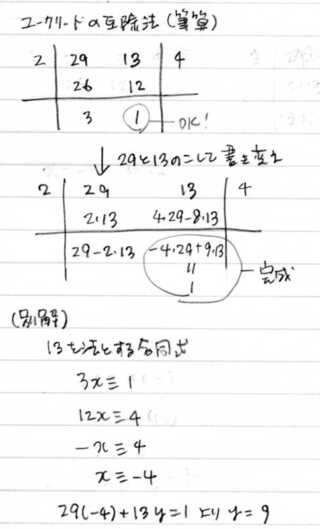 ユークリッドの互除法(筆算)
2 29 13 4
26 12
3 1 OK!
↓ 29と13のこして書き変え
2 29 13 4
2・13 4・29-8・13
29-2・13 -4・29+9・13
〃
1
完成
(別解)
13を法とする合同式
3x≡1
12x≡4
-x≡4
x≡-4
29(-4)+13y=1より y=9